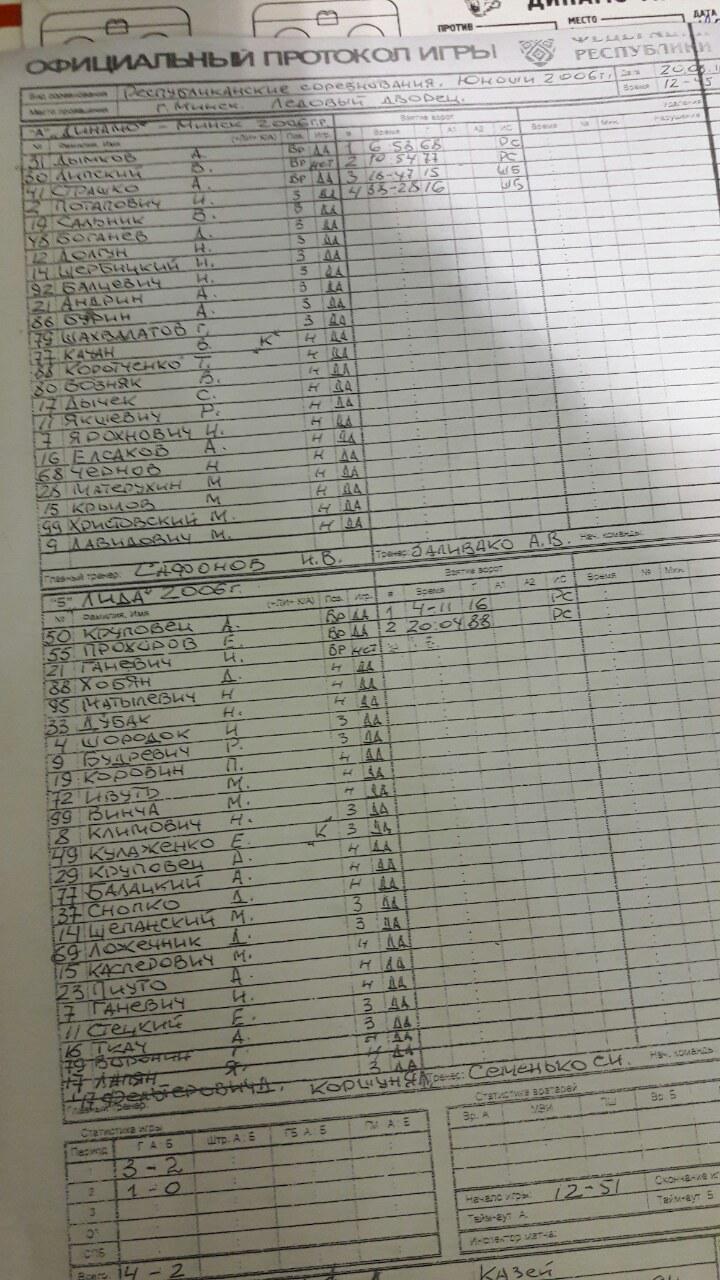 ДИНАМО
ПРОТИВ МЕСТО ДАТА
ОФИЦИАЛЬНЫЙ ПРОТОКОЛ ИГРЫ РЕСПУБЛИКИ
Вид соревнования Республиканские соревнования. Юноши 2006г. Дата
Место проведения г. Минск Ледовый дворец. Время 12-45
"А" "Динамо" - Минск 2006г.р. Взятие ворот
№ Фамилия, Имя Поз. Игр. # Время Г А1 А2 ИС Время № Мин.
31 Дымков А. Вр ДА 1 6 58 68 РС
30 Липский В. Вр нет 2 10 54 77 РС
41 Страшко А. Вр ДА 3 18-47 15 ШБ
2 Потапович И. З ДА 4 33-28 16 ШБ
19 Сальник В. З ДА
48 Боганев Д. З ДА
12 Долгун Н. З ДА
14 Щербицкий И. З ДА
92 Балцевич Н. З ДА
21 Андрин А. З ДА
86 Бурин А. З ДА
79 Шахвалатов Г. З ДА
77 Качан Б. "К" Н ДА
88 Коротченко Т. Н ДА
80 Возняк В. Н ДА
17 Дычек С. Н ДА
11 Якшевич Р. Н ДА
7 Ярохнович И. Н ДА
16 Елсаков А. Н ДА
68 Чернов Н Н ДА
28 Матерухин М Н ДА
15 Крылов М Н ДА
99 Христовский М. Н ДА
9 Давидович М. Н ДА
Главный тренер: Сафонов И.В. Тренер: Заливако А.В. Нач. команды:
"Б" "Лида" 2006г. Взятие ворот
№ Фамилия, Имя Поз. Игр. # Время Г А1 А2 ИС Время № Мин.
50 Круповец А. Вр ДА 1 4-11 16 РС
55 Прохоров Е. Вр ДА 2 20:04 88 РС
21 Ганевич И. Вр нет
88 Хобян Д. Н ДА
95 Матылевич Н Н ДА
33 Дубак Н. Н ДА
4 Шородок И З ДА
9 Будревич Р. З ДА
19 Коровин П. Н ДА
72 Ивуть М. Н ДА
99 Винча М. Н ДА
8 Климович Н. З ДА
49 Кулаженко Е. "К" З ДА
29 Круповец Д. Н ДА
77 Балацкий А. Н ДА
37 Снопко Д. Н ДА
14 Щепанский М. З ДА
69 Ложечник Д. З ДА
15 Касперович М. Н ДА
23 Пнуто А Н ДА
7 Ганевич И. Н ДА
11 Стецкий Е. З ДА
16 Ткач А. З ДА
79 Воронин Г. Н ДА
17 Лапян Я. Н ДА
Фельтерович Д. З ДА
Главный тренер: Коршун Тренер: Семенько С.И. Нач. команды
Статистика игры
Период Г А : Б Штр. А : Б ГБ А : Б ГМ А : Б
1 3-2
2 1-0
3
ОТ
СПБ
Всего 4-2
Статистика вратарей
Вр. А МВИ ПШ Вр. Б
Начало игры: 12-51
Тайм-аут А: Тайм-аут Б:
Инспектор матча:
Казей